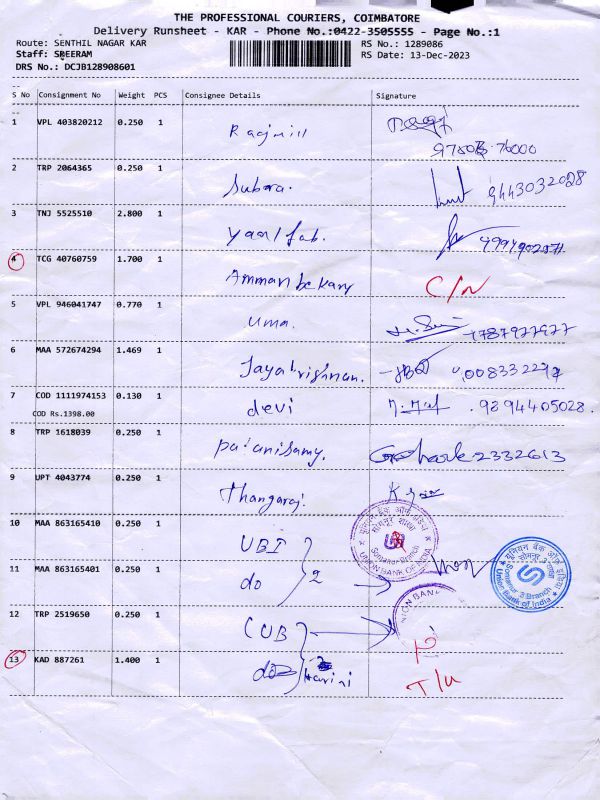 THE PROFESSIONAL COURIERS, COIMBATORE
Delivery Runsheet - KAR - Phone No.:0422-3505555 - Page No.:1
Route: SENTHIL NAGAR KAR
RS No.: 1289086
Staff: SREERAM
RS Date: 13-Dec-2023
DRS No.: DCJB128908601
S No Consignment No Weight PCS Consignee Details Signature
1 VPL 403820212 0.250 1 Raajmill
2 TRP 2064365 0.250 1 9443032028
3 TNJ 5525510 2.800 1
4 TCG 40760759 1.700 1 Amman bekary C/N
5 VPL 946041747 0.770 1 Uma.
6 MAA 572674294 1.469 1 Jayakrishnan.
7 COD 1111974153 0.130 1 devi 9894405028.
COD Rs.1398.00
8 TRP 1618039 0.250 1 Palanisamy. 2332613
9 UPT 4043774 0.250 1 Thangaraj.
10 MAA 863165410 0.250 1 UBI
UNION BANK OF INDIA
11 MAA 863165401 0.250 1 do 2
यूनियन बैंक ऑफ इंडिया
Somanur Branch
Union Bank of India
12 TRP 2519650 0.250 1 CUB
UNION BANK
13 KAD 887261 1.400 1 do Harini
T/U